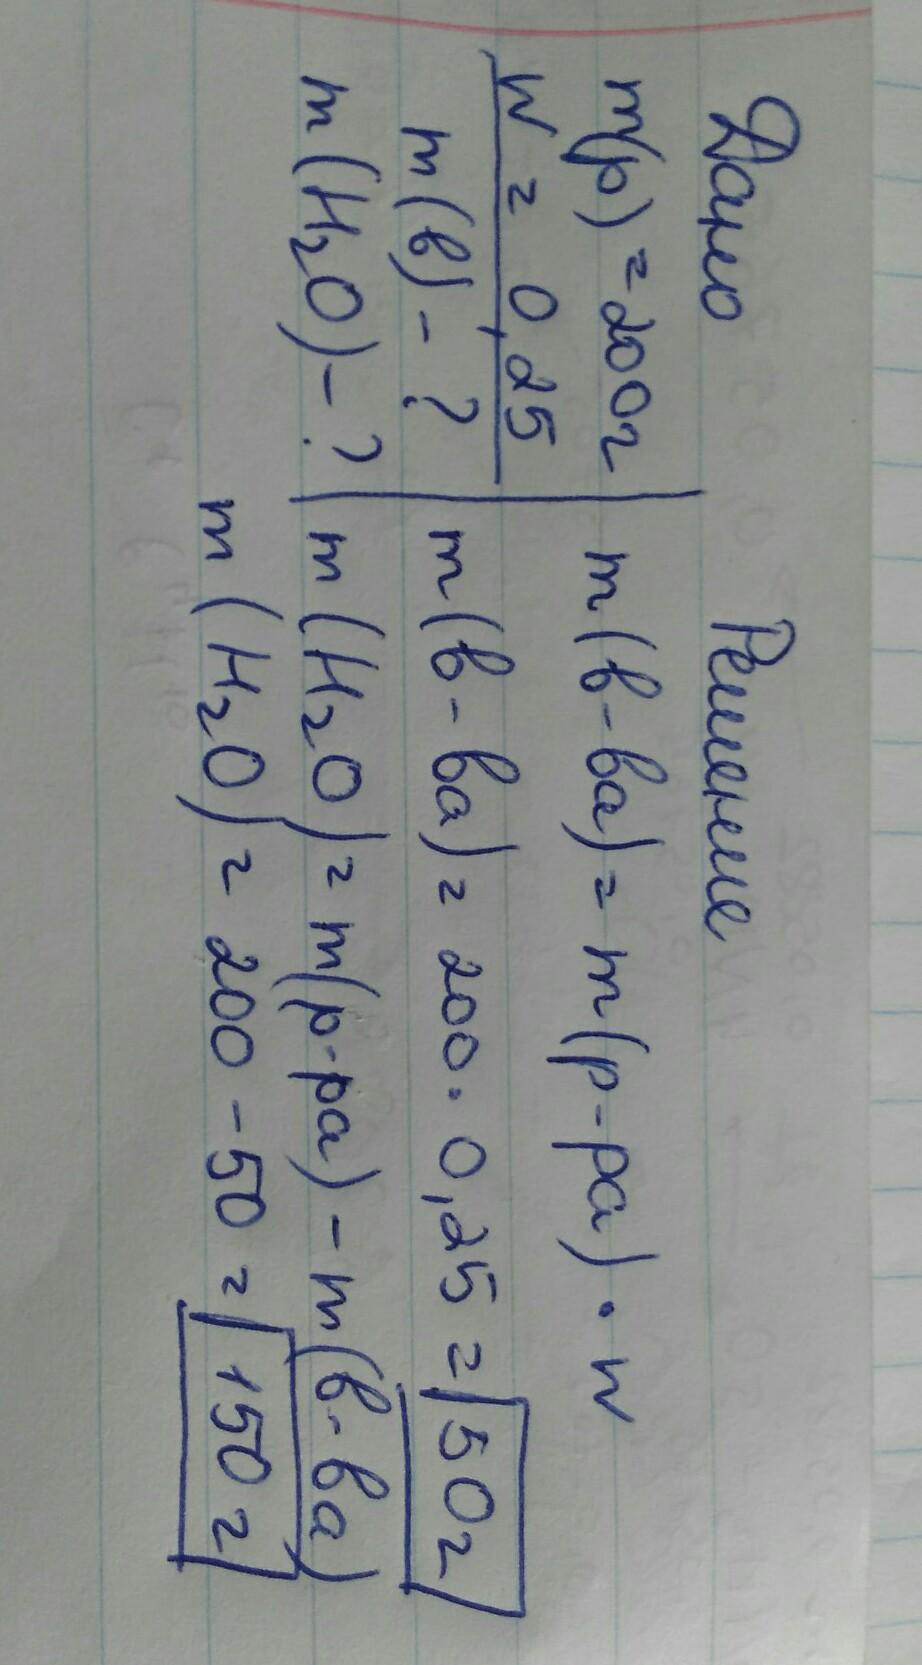 Дано
m(р) = 200г
w = 0,25
m(в) - ?
m(H₂O) - ?
Решение
m(в-ва) = m(р-ра) · w
m(в-ва) = 200 · 0,25 = 50г
m(H₂O) = m(р-ра) - m(в-ва)
m(H₂O) = 200 - 50 = 150г